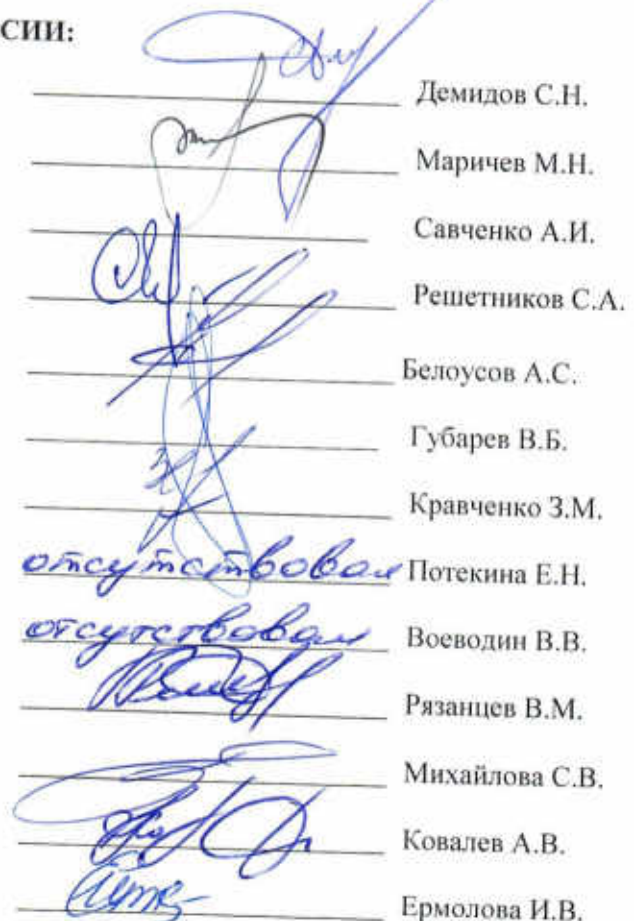 СИИ:
Демидов С.Н.
Маричев М.Н.
Савченко А.И.
Решетников С.А.
Белоусов А.С.
Губарев В.Б.
Кравченко З.М.
отсутствовал Потекина Е.Н.
отсутствовал Воеводин В.В.
Рязанцев В.М.
Михайлова С.В.
Ковалев А.В.
Ермолова И.В.